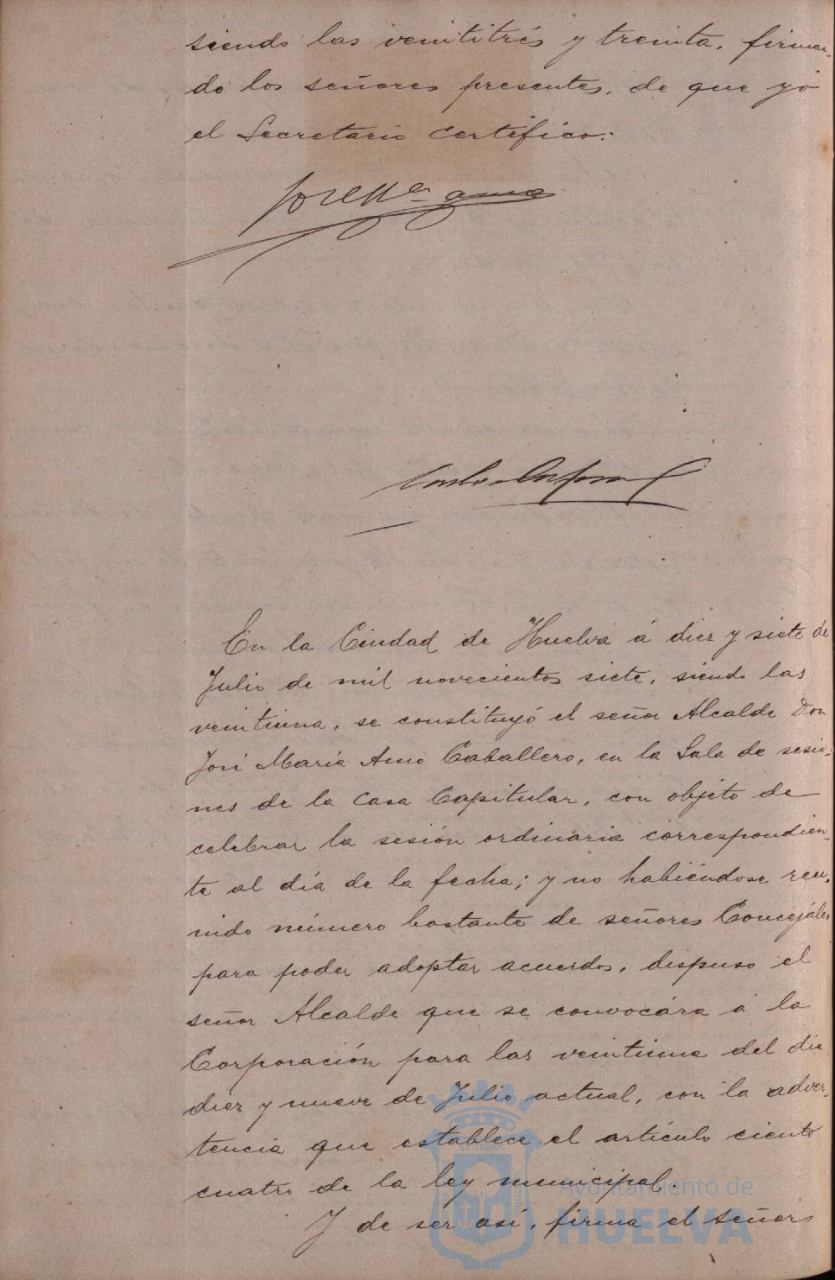 siendo las veintitrés y treinta, firman-
do los señores presentes, de que yo
el Secretario certifico.
José Mª Amo
En la Ciudad de Huelva á diez y siete de
Julio de mil novecientos siete, siendo las
veintiuna, se constituyó el señor Alcalde Don
José María Amo Caballero, en la Sala de sesio-
nes de la Casa Capitular, con objeto de
celebrar la sesión ordinaria correspondien-
te al día de la fecha; y no habiéndose reu-
nido número bastante de señores Concejáles
para poder adoptar acuerdos, dispuso el
señor Alcalde que se convocára á la
Corporación para las veintiuna del dia
diez y nueve de Julio actual, con la adver-
tencia que establece el artículo ciento
cuatro de la ley municipal.
Y de ser así, firma el señor
Ayuntamiento de
HUELVA